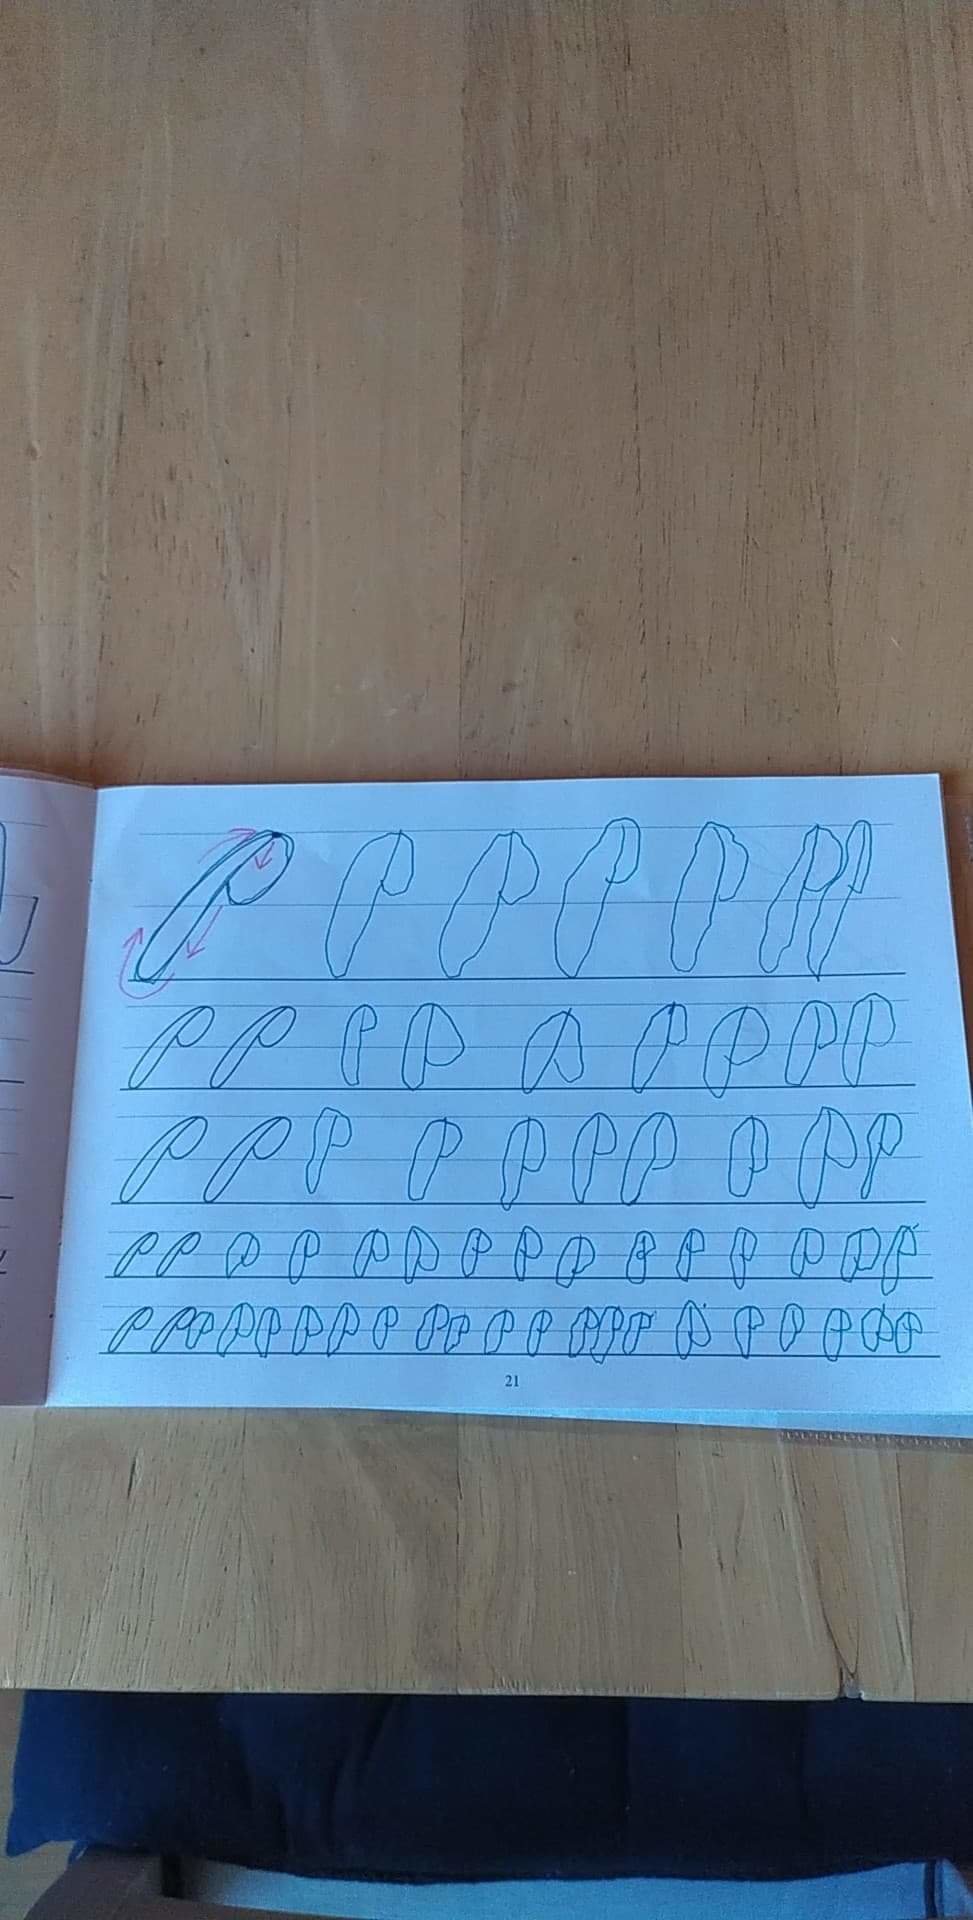 P P P P P P P
P P P P P P P P P
P P P P P P P P P P
P P P P P P P P P P P P P P P
P P P P P P P P P P P P P P P P P P P P P
21